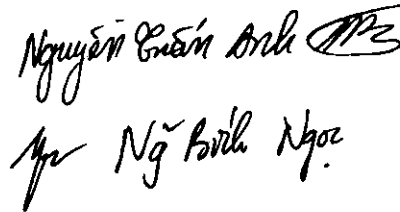 Nguyễn Tuấn Anh
Ng̃ Bích Ngọc